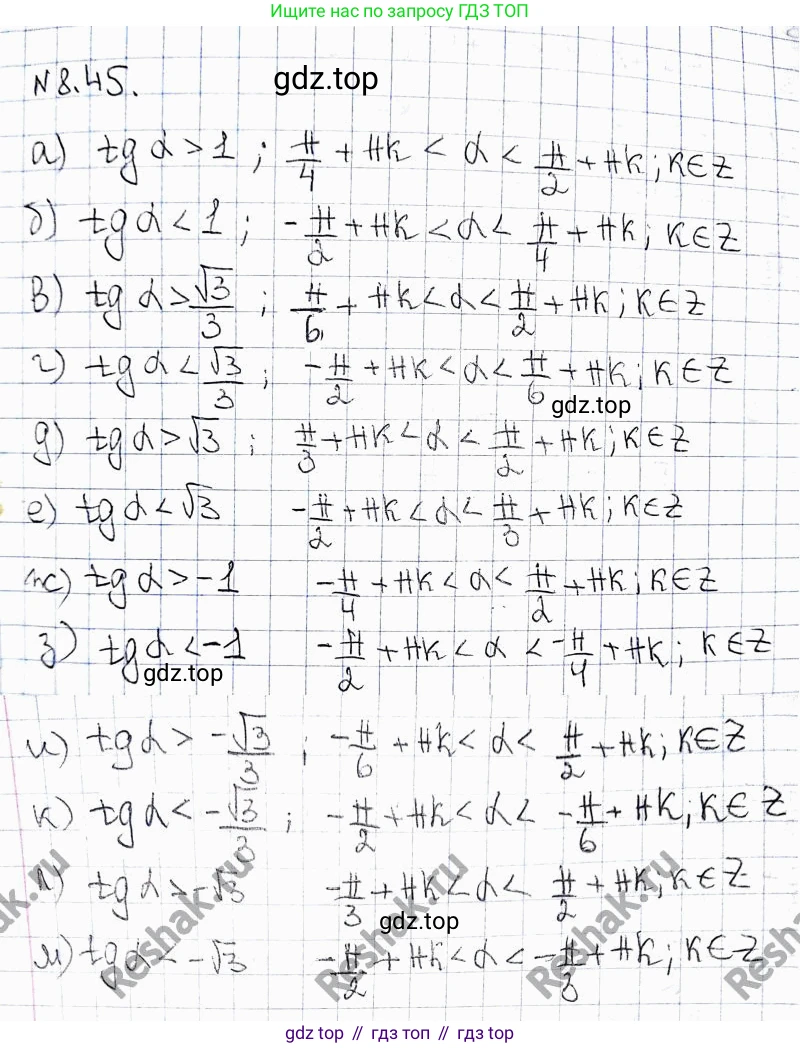 Ищите нас по запросу ГДЗ ТОП
N 8.45.
gdz.top
а) tg α > 1 ; π/4 + πk < α < π/2 + πk ; k ∈ Z
б) tg α < 1 ; -π/2 + πk < α < π/4 + πk ; k ∈ Z
в) tg α > √3/3 ; π/6 + πk < α < π/2 + πk ; k ∈ Z
г) tg α < √3/3 ; -π/2 + πk < α < π/6 + πk ; k ∈ Z
gdz.top
д) tg α > √3 ; π/3 + πk < α < π/2 + πk ; k ∈ Z
е) tg α < √3 -π/2 + πk < α < π/3 + πk ; k ∈ Z
ж) tg α > -1 -π/4 + πk < α < π/2 + πk ; k ∈ Z
з) tg α < -1 -π/2 + πk < α < -π/4 + πk ; k ∈ Z
gdz.top
и) tg α > -√3/3 ; -π/6 + πk < α < π/2 + πk ; k ∈ Z
к) tg α < -√3/3 ; -π/2 + πk < α < -π/6 + πk ; k ∈ Z
л) tg α > -√3 -π/3 + πk < α < π/2 + πk ; k ∈ Z
gdz.top
м) tg α < -√3 -π/2 + πk < α < -π/3 + πk ; k ∈ Z
Reshak.ru
Reshak.ru
Reshak.ru
gdz.top // гдз топ // gdz.top